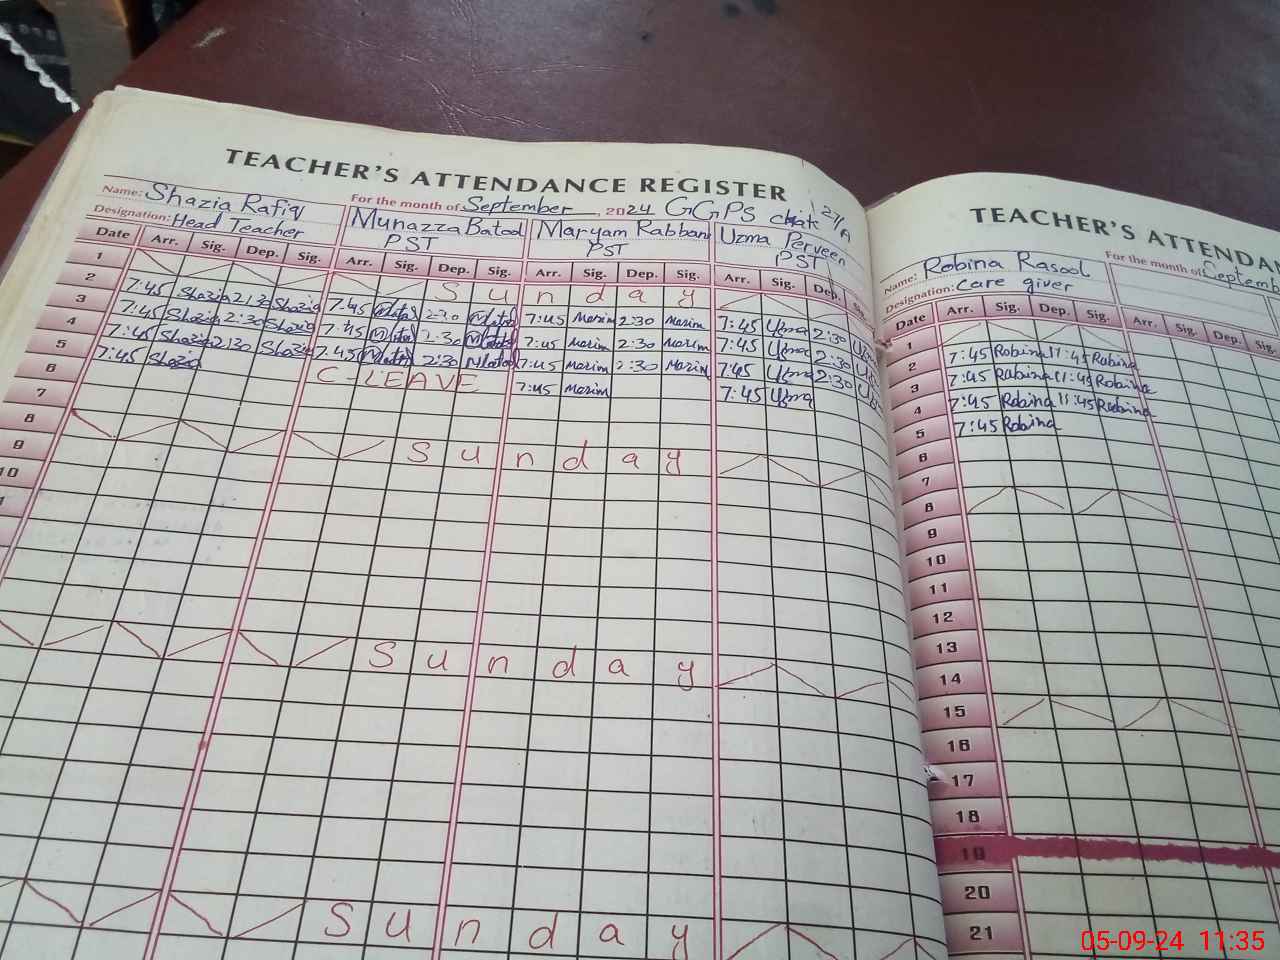 TEACHER'S ATTENDANCE REGISTER
Name: Shazia Rafiq
For the month of September, 2024 GGPS chak 127/A
Designation: Head Teacher
Munazza Batool
PST
Maryam Rabbani
PST
Uzma Perveen
PST
Date Arr. Sig. Dep. Sig. Arr. Sig. Dep. Sig. Arr. Sig. Dep. Sig. Arr. Sig. Dep. Sig.
1 Sunday
2 7:45 Shazia 2:30 Shazia 7:45 2:30 7:45 Mariam 2:30 Mariam 7:45 Uzma 2:30
3 7:45 Shazia 2:30 Shazia 7:45 2:30 7:45 Mariam 2:30 Mariam 7:45 Uzma 2:30
4 7:45 Shazia 2:30 Shazia 7:45 2:30 7:45 Mariam 2:30 Mariam 7:45 Uzma 2:30
5 7:45 Shazia C-LEAVE 7:45 Mariam 7:45 Uzma
6
7
8 Sunday
9
10
Sunday
Sunday
TEACHER'S ATTENDAN
Name: Robina Rasool
For the month of Septemb
Designation: care giver
Date Arr. Sig. Dep. Sig. Arr. Sig. Dep. Sig.
1
2 7:45 Robina 11:45 Robina
3 7:45 Robina 11:45 Robina
4 7:45 Robina 11:45 Robina
5 7:45 Robina
6
7
8
9
10
11
12
13
14
15
16
17
18
19
20
21
05-09-24 11:35